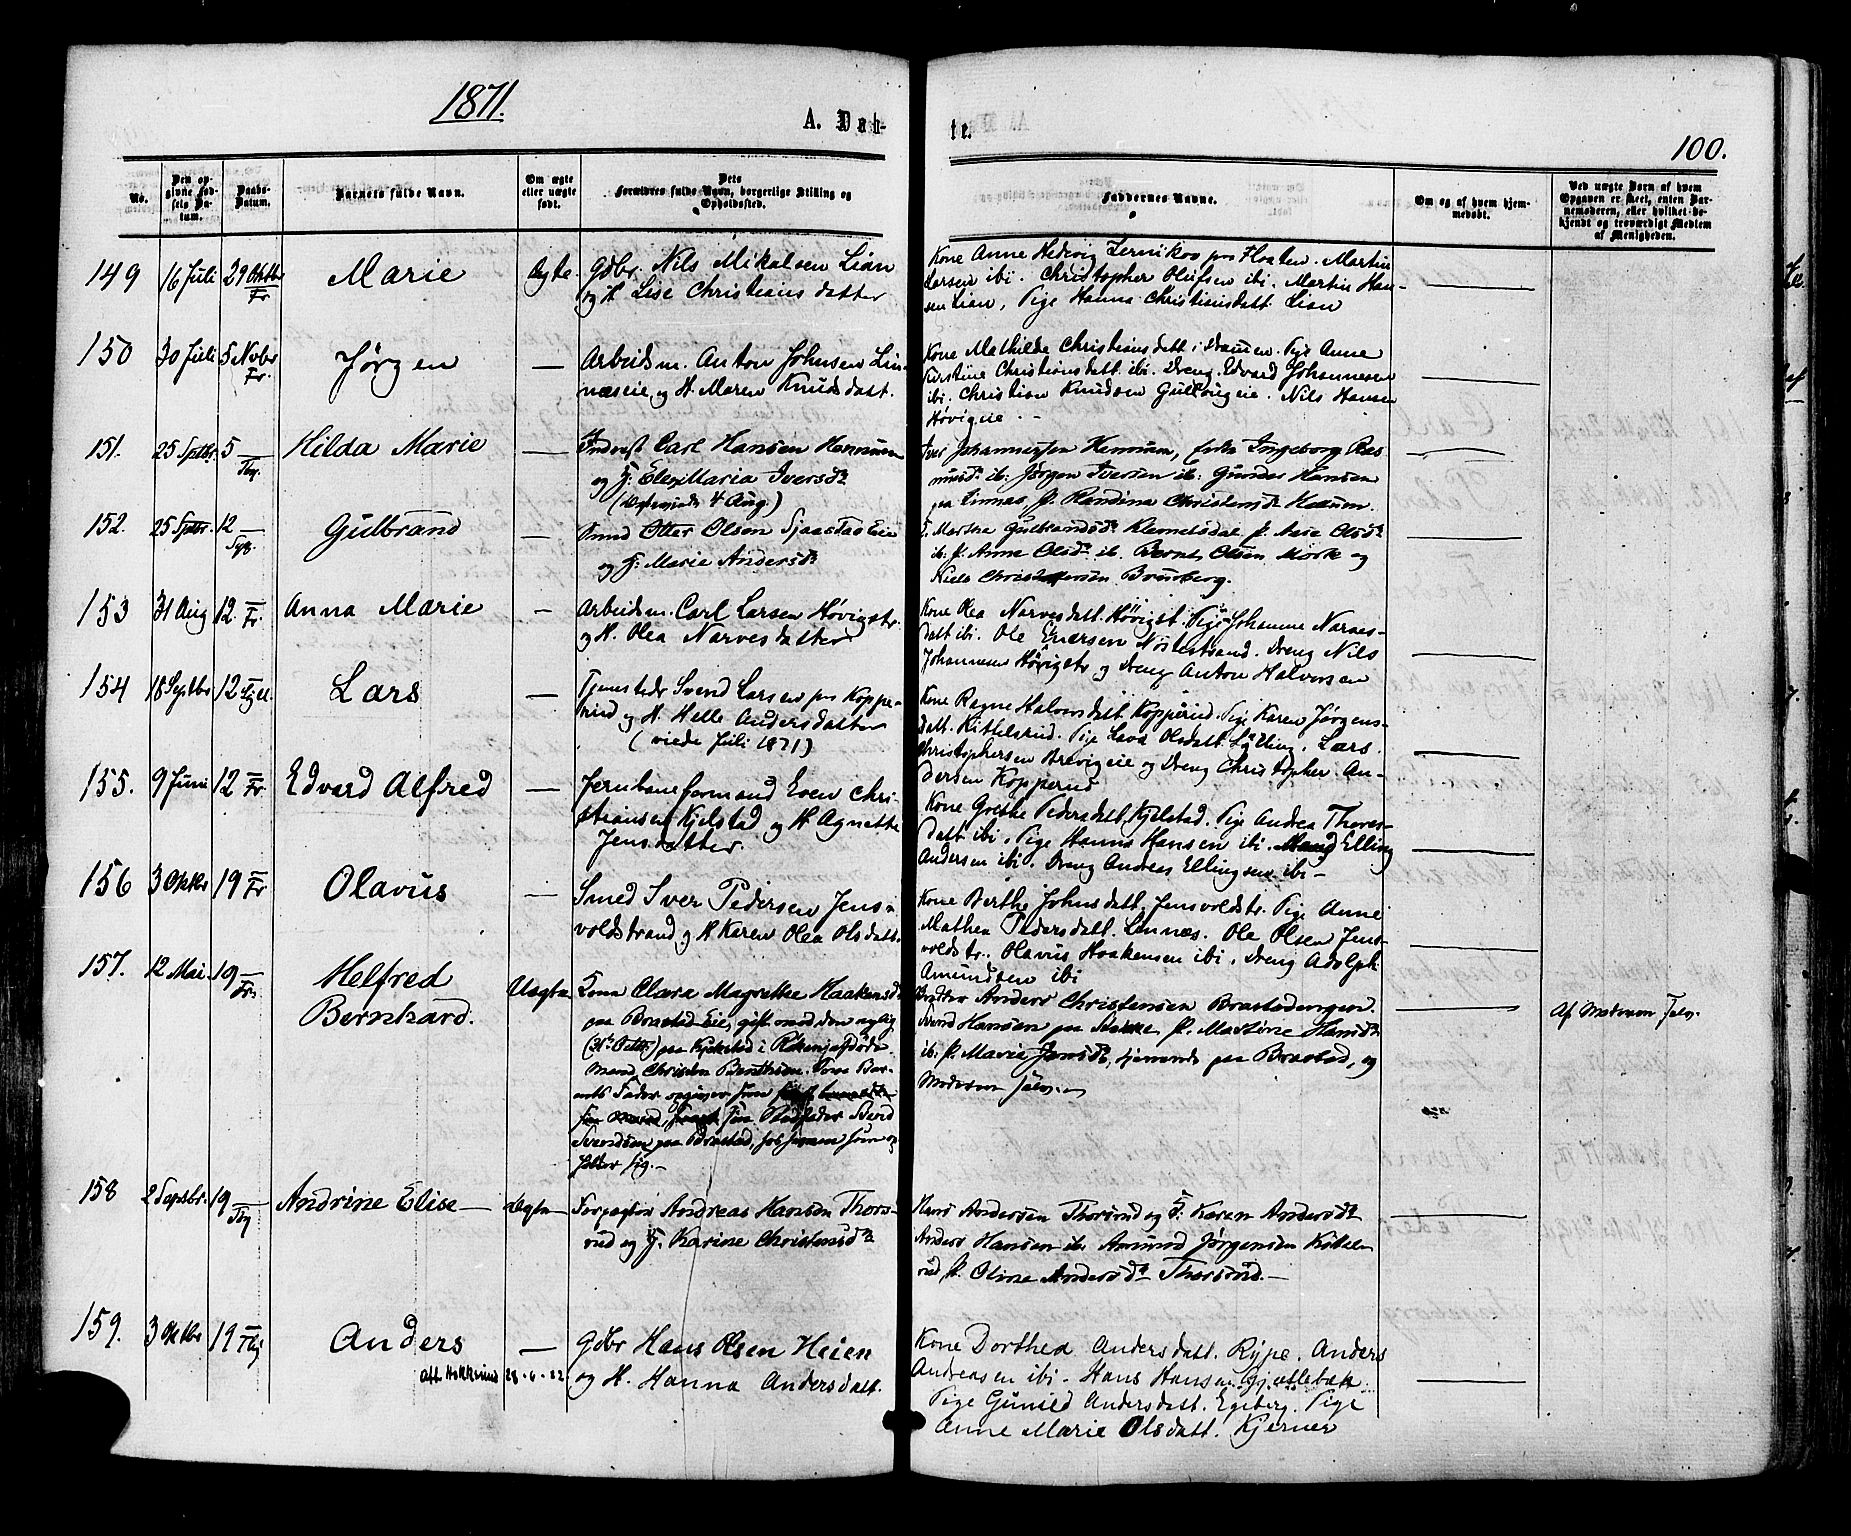 1871.
A. Døb-
te.
100.
No.
Den op-
givne Fød-
sels Da-
tum.
Daabs-
Datum.
Barnets fulde Navn.
Om ægte
eller uægte
født.
Dets
Forældres fulde Navn, borgerlige Stilling og
Opholdssted.
Faddernes Navne.
Om og af hvem hjem-
medøbt.
Ved uægte Børn af hvem
Opgaven er skeet, enten Bar-
nemoderen, eller hvilket be-
kjendt og troværdigt Medlem
af Menigheden.
149 16 Juli 29 Oktbr Fr Marie Ægte Gdbr. Nils Mikalsen Lian
og H. Lise Christiansdatter
Kone Anne Hedvig Jernikov paa Floaten. Martin
Larsen ibi. Christopher Olufsen ibi. Martin Han-
sen Lian, Pige Hanna Christiansdatt. Lian
150 30 Juli 5 Novbr Fr. Jørgen — Arbeidsm. Anton Johnsen Lin-
næseie og H. Maren Knudsdatt.
Kone Mathilde Christiansdatt i Dramen. Pige Anne
Kirstine Christiansdatt. ibi. Dreng Edvard Johannesen
ibi. Christian Knudsen Gullougeie. Nils Hansen
Høvigeie.
151. 25 Septbr. 5 — Hilda Marie — Carl Hansen Hennum
og H. Ellen Maria Iversdr
(4 Aug.)
Iver Johannessen Hennum, Enke Ingeborg Ras-
musdr ib. Jørgen Iversen ib. Gunder Hansen
paa Linnæs P. Randine Christensdr Haavum
152. 25 Septbr. 12 — Gulbrand — Smed Otter Olsen Sjaastad Eie
og H. Marie Andersdr
Martha Gulbrandsdr Klemetsdal P. Aase Olsdr
ib. P. Anne Olsdr ib. Bernt Olsen Mørk og
Niels Christensen Brusberg.
153 31 Aug 12 — Fr. Anna Marie — Arbeidsm. Carl Larsen Høvigstr.
og H. Olea Narvesdatter
Kone Olea Narvesdatt. Høvigst. Pige Johanne Narves-
datt ibi. Ole Enersen Nøstestrand. Dreng Nils
Johannesen Høvigstr og Dreng Anton Halvorsen
154 18 Septbr 12 — Lars — Tjenestedr Svend Larsen paa Koppe-
rud og H. Helle Andersdatter
(viede Juli 1871)
Kone Ragne Halvorsdatt Kopperud. Pige Karen Jørgens-
datt. Kittelsrud. Pige Lava Olsdatt Lylling. Lars
Christophersen Brevigeie og Dreng Christopher An-
dersen Kopperud
155. 9 Juni 12 — Fr. Edvard Alfred — Jernbaneformand Even Chri-
stiansen Kjelstad og H. Agnette
Jensdatter.
Kone Grethe Pedersdatt. Kjelstad. Pige Andrea Thores-
datt ibi. Pige Hanna Hansen ibi. Elling
Andersen ibi. Dreng Andreas Ellingsen ibi —
156 3 Oktbr 19 — Fr Olavus — Smed Iver Pedersen Jens-
voldstrand og H. Karen Olea Olsdatt.
Kone Berthe Johnsdatt Jensvoldstr. Pige Anne
Mathea Pedersdatt. Linnæs. Ole Olsen Jens-
voldstr. Olavus Haakensen ibi. Dreng Adolph
Amundsen ibi
157. 12 Mai 19 — Fr. Helfred
Bernhard. Uægte Kone Clara Magrethe Haakensdr
paa Brastad Eie, gift med den nylig
paa Kjekstad i Røken afdøde
Mand, Christen Berntsen. Som Bar-
nets Fader opgiver hun
Svend
Svendsen paa Brastad, hos hvem hun op-
holder sig. —
Anders Christensen Brastadengen.
Svend Hansen paa P. Martine Hansdr
ib. P. Maria Jensdr, tjenende paa Brastad, og
Moderen selv. —
Af Moderen selv.
158 2 Septbr. 19 — Andrine Elise — Ægte Forpagter Andreas Hansen Thors-
rud og H. Karine Christensdr
Hans Andersen Thorsrud og H. Karen Andersdr
Anders Hansen ib. Amund Jørgensen Kittels-
rud P. Oline Andersdr Thorsrud. —
159. 3 Oktbr 19 — Anders — Gdbr Hans Olsen Heien
og H. Hanna Andersdatt.
28-6-22
Kone Dorthea Andersdatt. Rype. Anders
Andreasen ibi. Hans Hansen Gjetlebæk.
Pige Gunild Andersdatt. Egeberg. Pige
Anne Marie Olsdatt. Kjerner